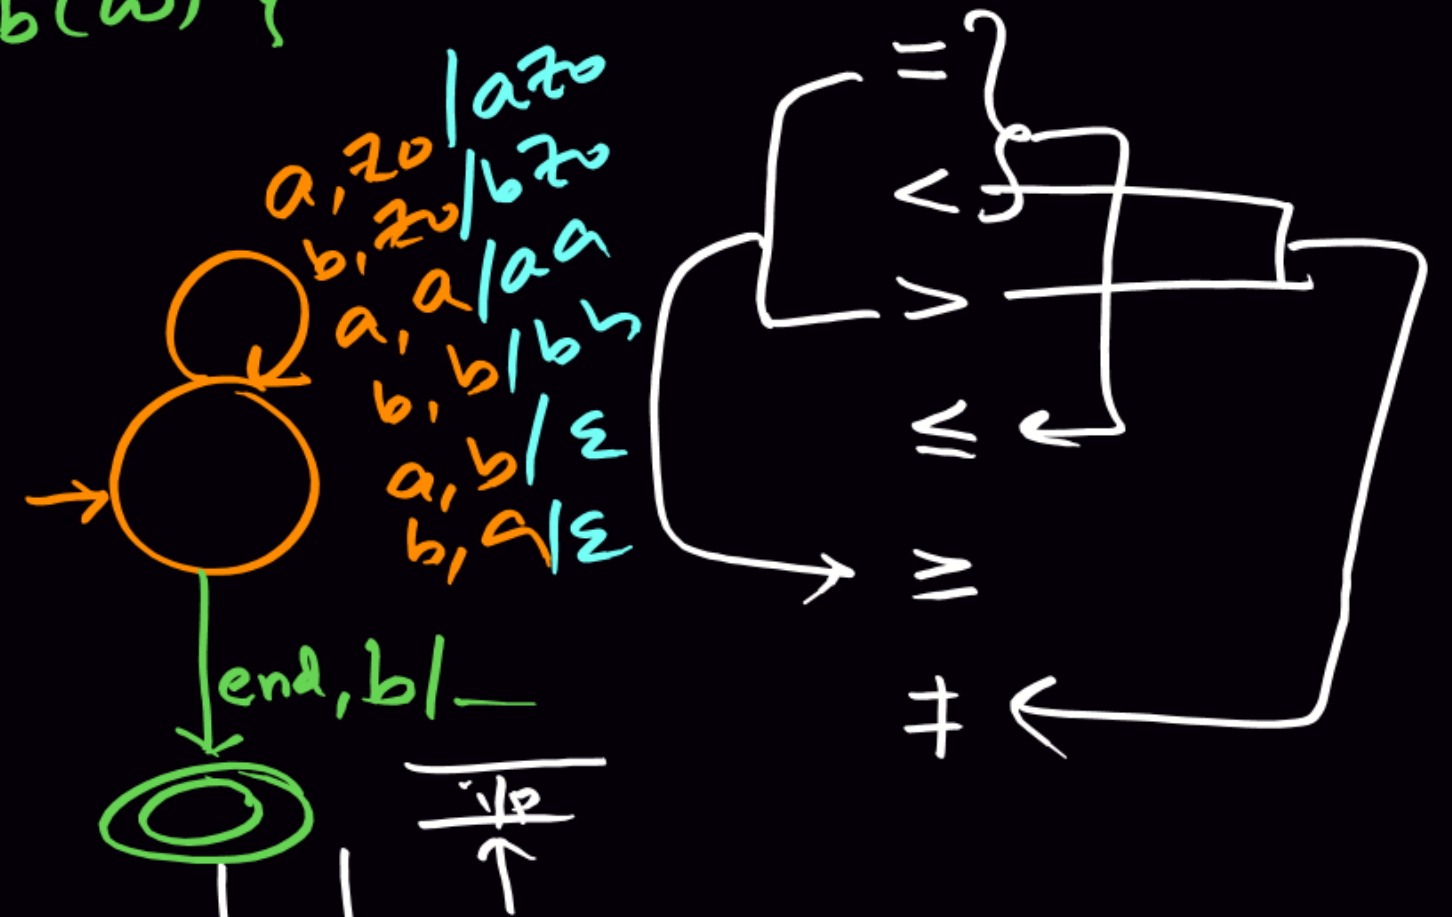 b(w) {
a, z0 | az0
b, z0 | bz0
a, a | aa
b, b | bb
a, b | ε
b, a | ε
end, b | __
i/p
=
<
>
≤
≥
≠